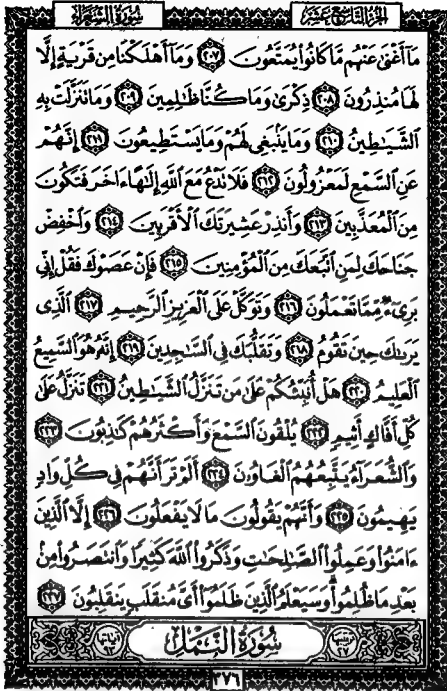 سُورَةُ الشُّعَرَاءِ الجزء التاسع عشر
مَآ أَغْنَىٰ عَنْهُم مَّا كَانُوا۟ يُمَتَّعُونَ ٢٠٧ وَمَآ أَهْلَكْنَا مِن قَرْيَةٍ إِلَّا
لَهَا مُنذِرُونَ ٢٠٨ ذِكْرَىٰ وَمَا كُنَّا ظَٰلِمِينَ ٢٠٩ وَمَا تَنَزَّلَتْ بِهِ
ٱلشَّيَٰطِينُ ٢١٠ وَمَا يَنۢبَغِى لَهُمْ وَمَا يَسْتَطِيعُونَ ٢١١ إِنَّهُمْ
عَنِ ٱلسَّمْعِ لَمَعْزُولُونَ ٢١٢ فَلَا تَدْعُ مَعَ ٱللَّهِ إِلَٰهًا ءَاخَرَ فَتَكُونَ
مِنَ ٱلْمُعَذَّبِينَ ٢١٣ وَأَنذِرْ عَشِيرَتَكَ ٱلْأَقْرَبِينَ ٢١٤ وَٱخْفِضْ
جَنَاحَكَ لِمَنِ ٱتَّبَعَكَ مِنَ ٱلْمُؤْمِنِينَ ٢١٥ فَإِنْ عَصَوْكَ فَقُلْ إِنِّى
بَرِىٓءٌ مِّمَّا تَعْمَلُونَ ٢١٦ وَتَوَكَّلْ عَلَى ٱلْعَزِيزِ ٱلرَّحِيمِ ٢١٧ ٱلَّذِى
يَرَىٰكَ حِينَ تَقُومُ ٢١٨ وَتَقَلُّبَكَ فِى ٱلسَّٰجِدِينَ ٢١٩ إِنَّهُۥ هُوَ ٱلسَّمِيعُ
ٱلْعَلِيمُ ٢٢٠ هَلْ أُنَبِّئُكُمْ عَلَىٰ مَن تَنَزَّلُ ٱلشَّيَٰطِينُ ٢٢١ تَنَزَّلُ عَلَىٰ
كُلِّ أَفَّاكٍ أَثِيمٍ ٢٢٢ يُلْقُونَ ٱلسَّمْعَ وَأَكْثَرُهُمْ كَٰذِبُونَ ٢٢٣
وَٱلشُّعَرَآءُ يَتَّبِعُهُمُ ٱلْغَاوُۥنَ ٢٢٤ أَلَمْ تَرَ أَنَّهُمْ فِى كُلِّ وَادٍ
يَهِيمُونَ ٢٢٥ وَأَنَّهُمْ يَقُولُونَ مَا لَا يَفْعَلُونَ ٢٢٦ إِلَّا ٱلَّذِينَ
ءَامَنُوا۟ وَعَمِلُوا۟ ٱلصَّٰلِحَٰتِ وَذَكَرُوا۟ ٱللَّهَ كَثِيرًا وَٱنتَصَرُوا۟ مِنۢ
بَعْدِ مَا ظُلِمُوا۟ وَسَيَعْلَمُ ٱلَّذِينَ ظَلَمُوٓا۟ أَىَّ مُنقَلَبٍ يَنقَلِبُونَ ٢٢٧
ترتيبها ٢٧ سُورَةُ النَّمْلِ آياتها ٩٣
٣٧٦